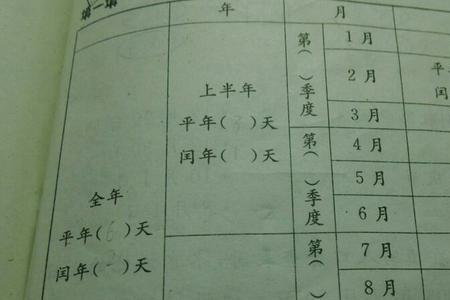 年
月
全年
平年( )天
闰年( )天
上半年
平年( )天
闰年( )天
第( )季度
1月
2月
平
闰
3月
第( )季度
4月
5月
6月
第(
7月
8月